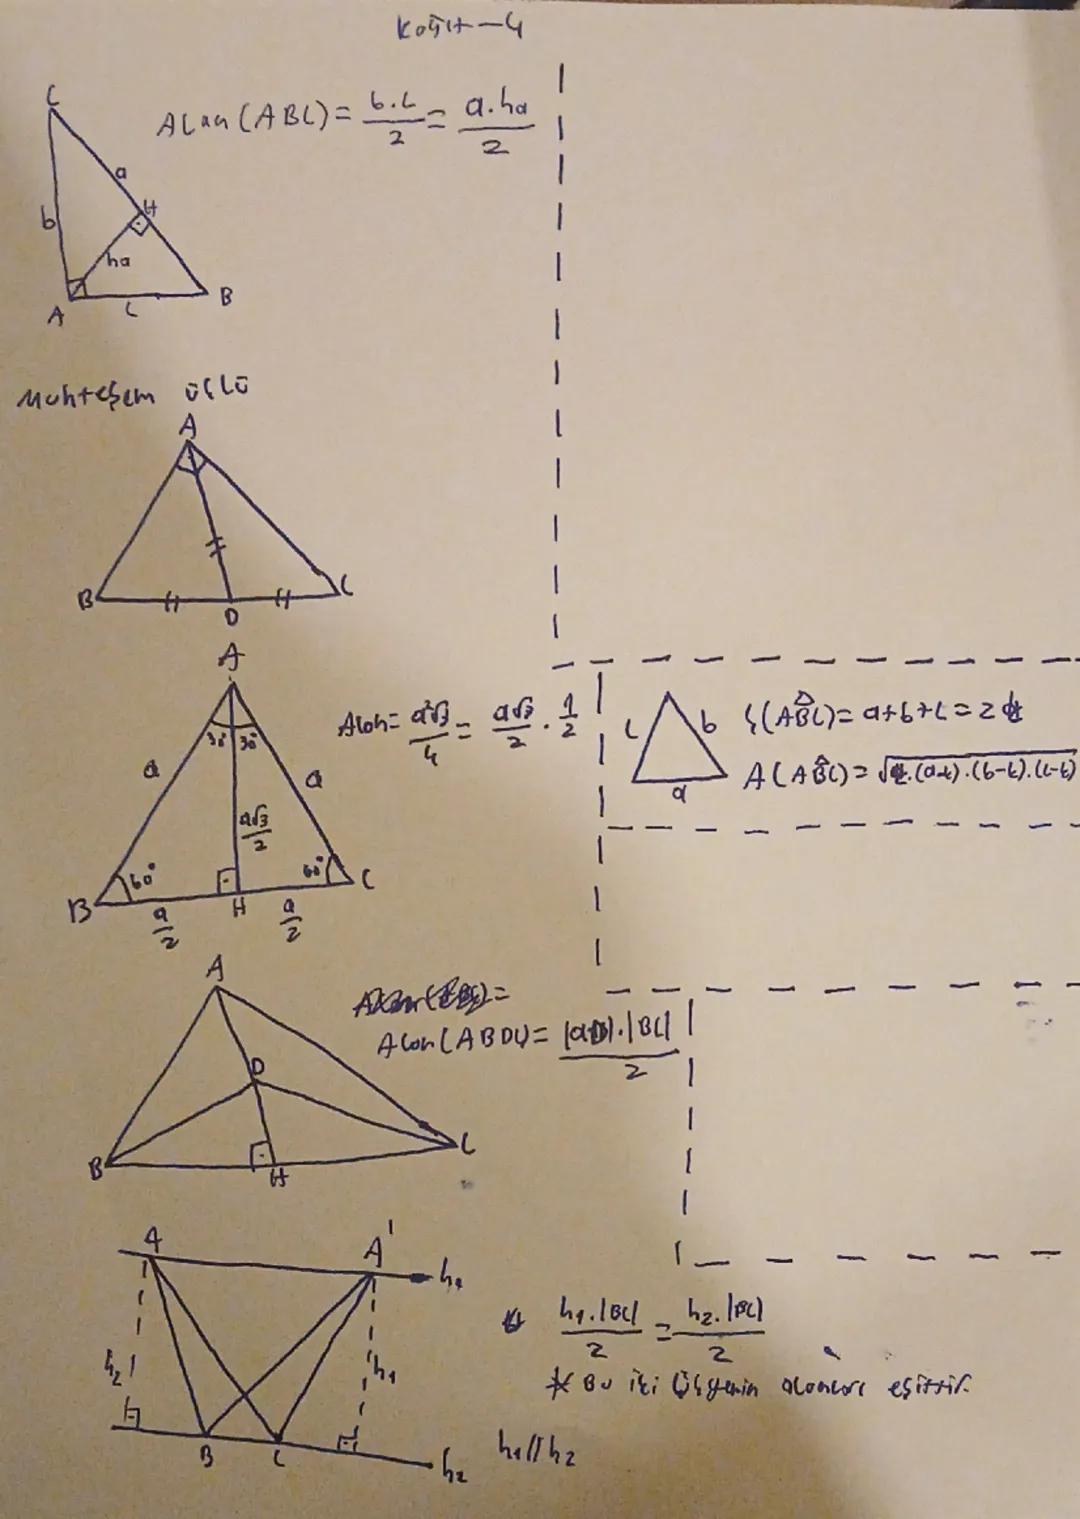 Kağıt-4
Alan(ABC) = b.c/2 = a.ha/2
C
a
b
H
ha
A
c
B
Muhteşem üçlü
A
B
D
C
A
30° 30°
a
a
a√3/2
60°
60°
B
H
C
a/2
a/2
Alan = a²√3/4 = a√3/2 . 1/2
c
b
a
Ç(ABC) = a+b+c = 2
A(ABC) =
A
D
B
H
C
Alan(ABDC) = |aD|.|BC|/2
A
A'
h1
h2
h1
B
C
h2
h1//h2
h1.|BC|/2 = h2.|BC|/2
* Bu iki üçgenin alanları eşittir.